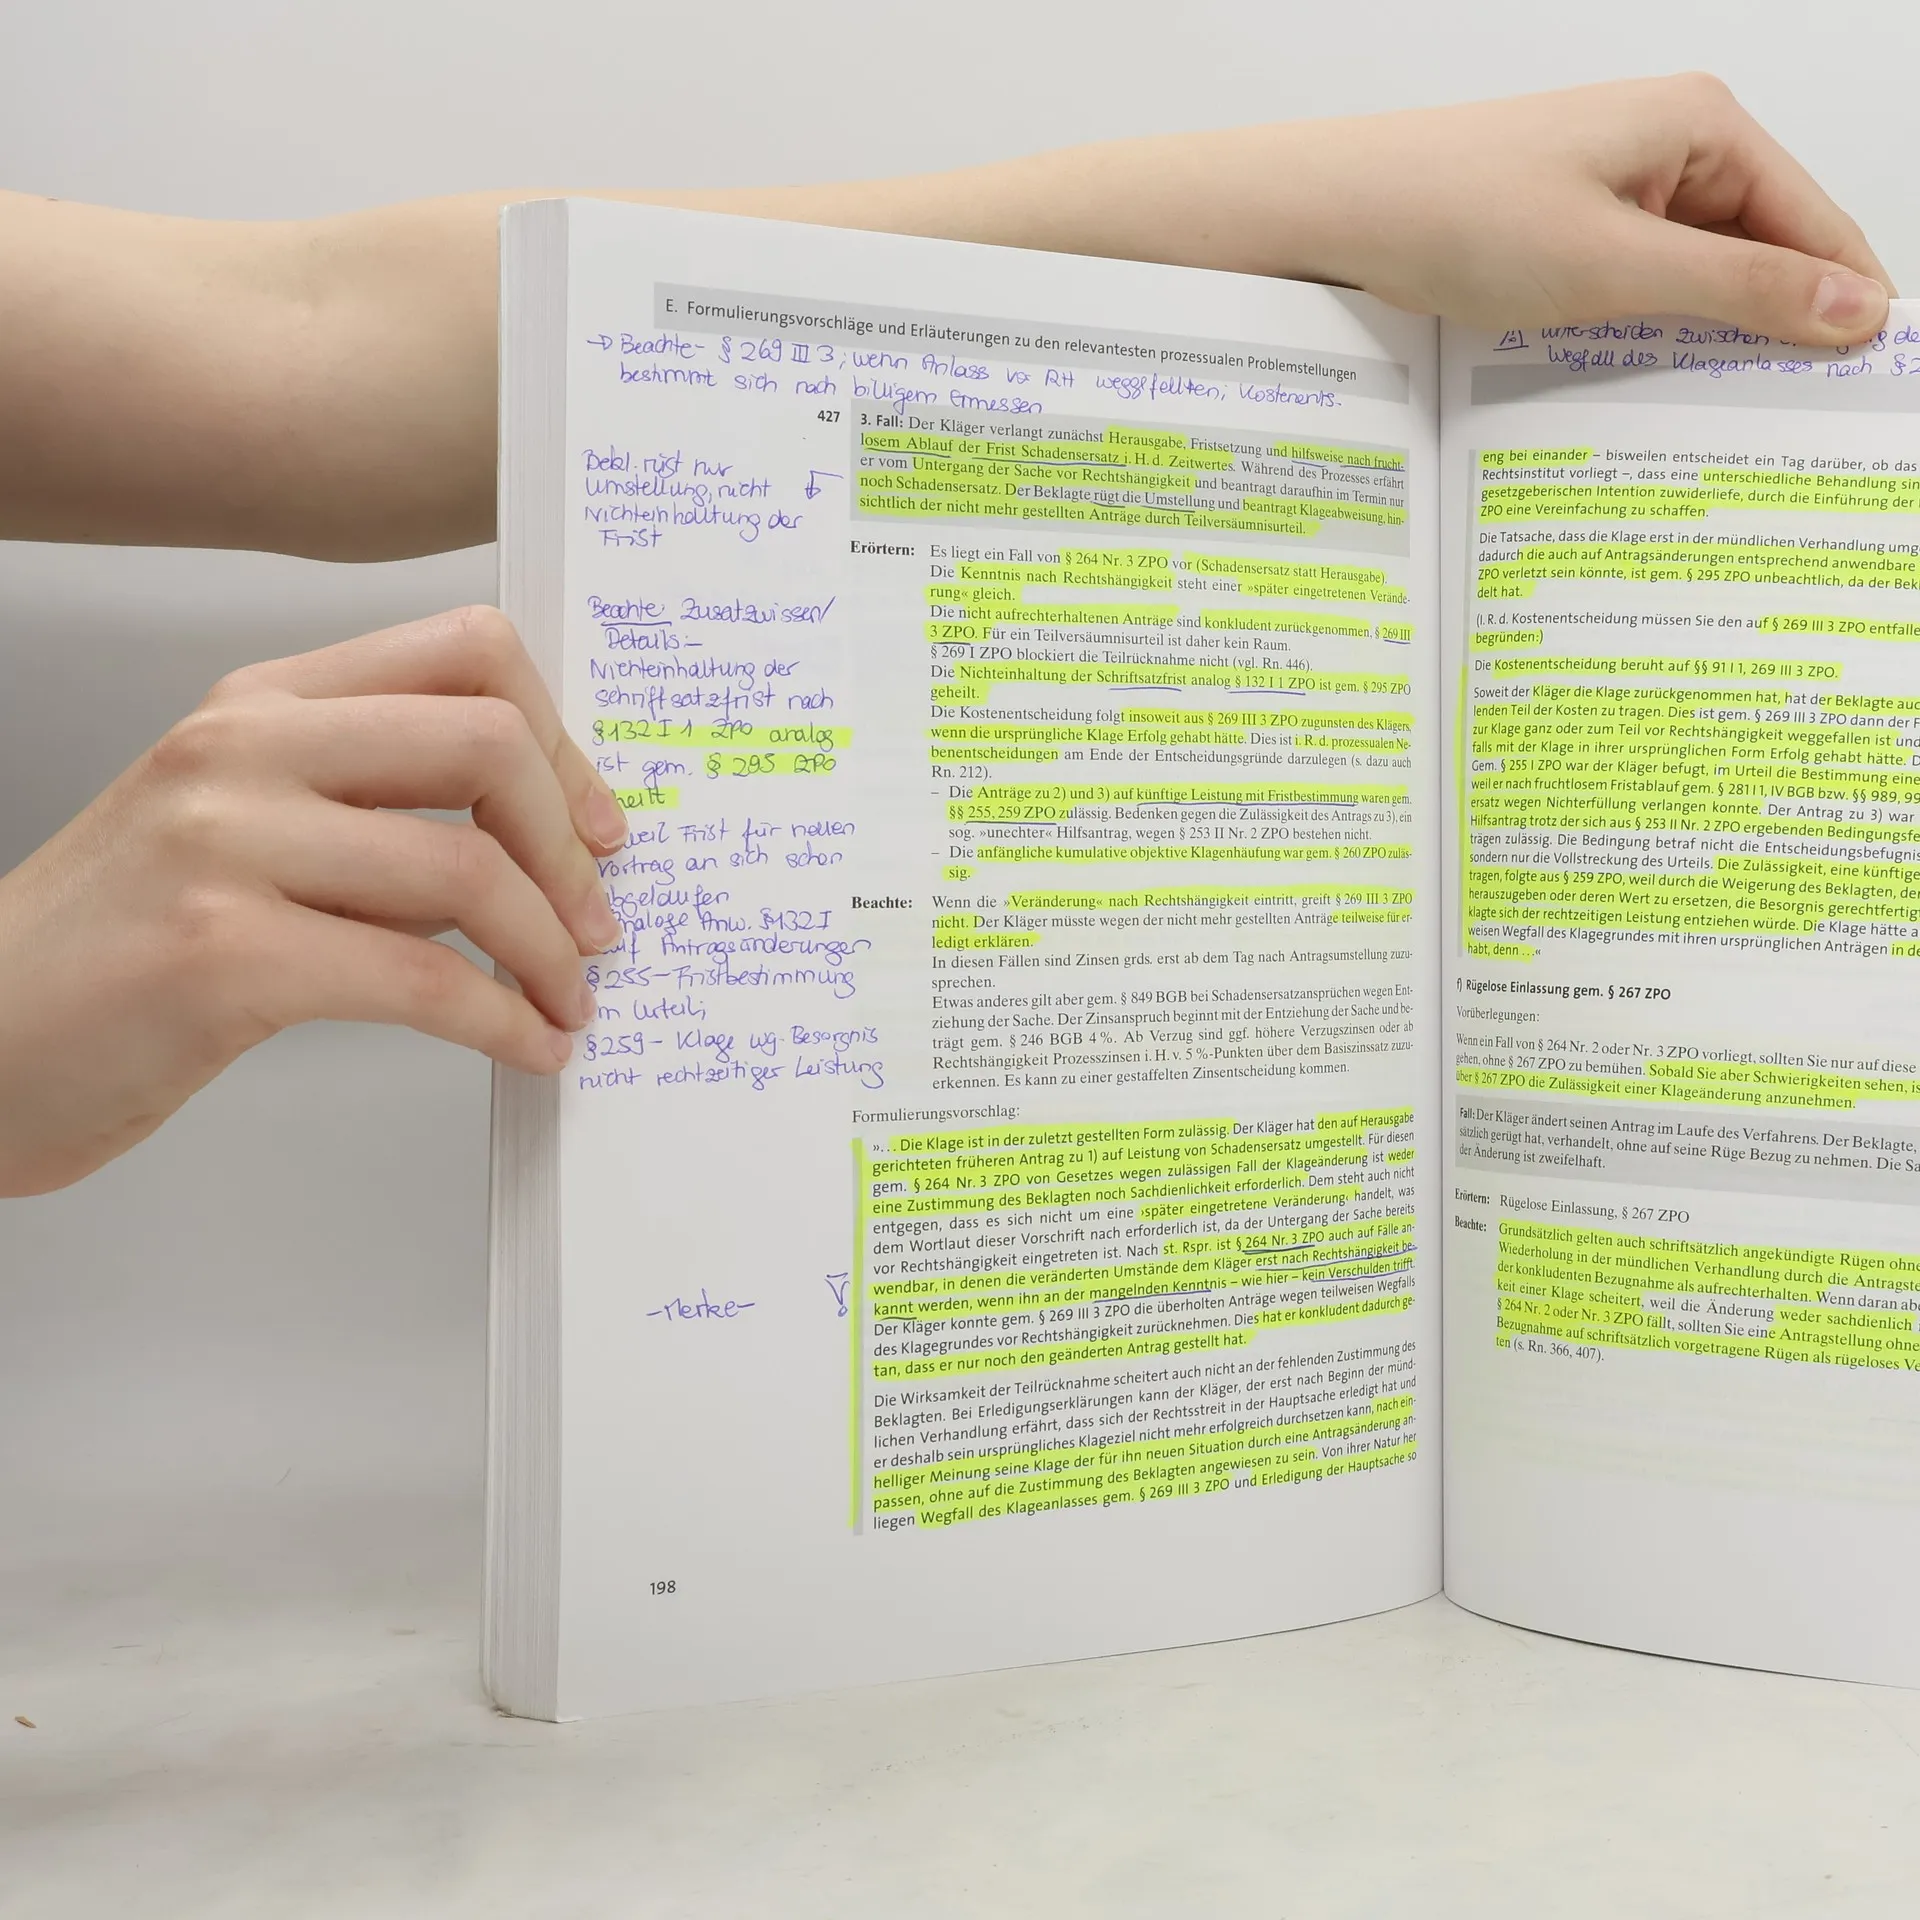 E. Formulierungsvorschläge und Erläuterungen zu den relevantesten prozessualen Problemstellungen
→ Beachte - § 269 III 3; wenn Anlass vor RH weggefallen; Kostenents.
bestimmt sich nach billigem Ermessen
427
3. Fall: Der Kläger verlangt zunächst Herausgabe, Fristsetzung und hilfsweise nach frucht-
losem Ablauf der Frist Schadensersatz i. H. d. Zeitwertes. Während des Prozesses erfährt
er vom Untergang der Sache vor Rechtshängigkeit und beantragt daraufhin im Termin nur
noch Schadensersatz. Der Beklagte rügt die Umstellung und beantragt Klageabweisung, hin-
sichtlich der nicht mehr gestellten Anträge durch Teilversäumnisurteil.
Bekl. rüst nur
Umstellung, nicht
Nichteinhaltung der
Frist
Erörtern: Es liegt ein Fall von § 264 Nr. 3 ZPO vor (Schadensersatz statt Herausgabe).
Die Kenntnis nach Rechtshängigkeit steht einer »später eingetretenen Verände-
rung« gleich.
Die nicht aufrechterhaltenen Anträge sind konkludent zurückgenommen, § 269 III
3 ZPO. Für ein Teilversäumnisurteil ist daher kein Raum.
§ 269 I ZPO blockiert die Teilrücknahme nicht (vgl. Rn. 446).
Die Nichteinhaltung der Schriftsatzfrist analog § 132 I 1 ZPO ist gem. § 295 ZPO
geheilt.
Die Kostenentscheidung folgt insoweit aus § 269 III 3 ZPO zugunsten des Klägers,
wenn die ursprüngliche Klage Erfolg gehabt hätte. Dies ist i. R. d. prozessualen Ne-
benentscheidungen am Ende der Entscheidungsgründe darzulegen (s. dazu auch
Rn. 212).
– Die Anträge zu 2) und 3) auf künftige Leistung mit Fristbestimmung waren gem.
§§ 255, 259 ZPO zulässig. Bedenken gegen die Zulässigkeit des Antrags zu 3), ein
sog. »unechter« Hilfsantrag, wegen § 253 II Nr. 2 ZPO bestehen nicht.
– Die anfängliche kumulative objektive Klagenhäufung war gem. § 260 ZPO zuläs-
sig.
Beachte: Zusatzwissen/
Details:-
Nichteinhaltung der
Schriftsatzfrist nach
§132 I 1 ZPO analog
ist gem. § 295 ZPO
heilt
weil Frist für neuen
Vortrag an sich schon
abgelaufen
naloge Anw. §132 I
auf Antragsänderungen
§ 255 – Fristbestimmung
im Urteil;
§ 259 – Klage wg. Besorgnis
nicht rechtzeitiger Leistung
Beachte: Wenn die »Veränderung« nach Rechtshängigkeit eintritt, greift § 269 III 3 ZPO
nicht. Der Kläger müsste wegen der nicht mehr gestellten Anträge teilweise für er-
ledigt erklären.
In diesen Fällen sind Zinsen grds. erst ab dem Tag nach Antragsumstellung zuzu-
sprechen.
Etwas anderes gilt aber gem. § 849 BGB bei Schadensersatzansprüchen wegen Ent-
ziehung der Sache. Der Zinsanspruch beginnt mit der Entziehung der Sache und be-
trägt gem. § 246 BGB 4 %. Ab Verzug sind ggf. höhere Verzugszinsen oder ab
Rechtshängigkeit Prozesszinsen i. H. v. 5 %-Punkten über dem Basiszinssatz zuzu-
erkennen. Es kann zu einer gestaffelten Zinsentscheidung kommen.
Formulierungsvorschlag:
»… Die Klage ist in der zuletzt gestellten Form zulässig. Der Kläger hat den auf Herausgabe
gerichteten früheren Antrag zu 1) auf Leistung von Schadensersatz umgestellt. Für diesen
gem. § 264 Nr. 3 ZPO von Gesetzes wegen zulässigen Fall der Klageänderung ist weder
eine Zustimmung des Beklagten noch Sachdienlichkeit erforderlich. Dem steht auch nicht
entgegen, dass es sich nicht um eine ›später eingetretene Veränderung‹ handelt, was
dem Wortlaut dieser Vorschrift nach erforderlich ist, da der Untergang der Sache bereits
vor Rechtshängigkeit eingetreten ist. Nach st. Rspr. ist § 264 Nr. 3 ZPO auch auf Fälle an-
wendbar, in denen die veränderten Umstände dem Kläger erst nach Rechtshängigkeit be-
kannt werden, wenn ihn an der mangelnden Kenntnis – wie hier – kein Verschulden trifft.
Der Kläger konnte gem. § 269 III 3 ZPO die überholten Anträge wegen teilweisen Wegfalls
des Klagegrundes vor Rechtshängigkeit zurücknehmen. Dies hat er konkludent dadurch ge-
tan, dass er nur noch den geänderten Antrag gestellt hat.
-Merke-
Die Wirksamkeit der Teilrücknahme scheitert auch nicht an der fehlenden Zustimmung des
Beklagten. Bei Erledigungserklärungen kann der Kläger, der erst nach Beginn der münd-
lichen Verhandlung erfährt, dass sich der Rechtsstreit in der Hauptsache erledigt hat und
er deshalb sein ursprüngliches Klageziel nicht mehr erfolgreich durchsetzen kann, nach ein-
helliger Meinung seine Klage der für ihn neuen Situation durch eine Antragsänderung an-
passen, ohne auf die Zustimmung des Beklagten angewiesen zu sein. Von ihrer Natur her
liegen Wegfall des Klageanlasses gem. § 269 III 3 ZPO und Erledigung der Hauptsache so
198
unterscheiden zwischen
Wegfall des Klageanlasses nach §
eng bei einander – bisweilen entscheidet ein Tag darüber, ob das
Rechtsinstitut vorliegt –, dass eine unterschiedliche Behandlung
gesetzgeberischen Intention zuwiderliefe, durch die Einführung der
ZPO eine Vereinfachung zu schaffen.
Die Tatsache, dass die Klage erst in der mündlichen Verhandlung umg
dadurch die auch auf Antragsänderungen entsprechend anwendbare
ZPO verletzt sein könnte, ist gem. § 295 ZPO unbeachtlich, da der Bek
delt hat.
(I. R. d. Kostenentscheidung müssen Sie den auf § 269 III 3 ZPO entfalle
begründen:)
Die Kostenentscheidung beruht auf §§ 91 I 1, 269 III 3 ZPO.
Soweit der Kläger die Klage zurückgenommen hat, hat der Beklagte auc
lenden Teil der Kosten zu tragen. Dies ist gem. § 269 III 3 ZPO dann der F
zur Klage ganz oder zum Teil vor Rechtshängigkeit weggefallen ist und
falls mit der Klage in ihrer ursprünglichen Form Erfolg gehabt hätte. D
Gem. § 255 I ZPO war der Kläger befugt, im Urteil die Bestimmung eine
weil er nach fruchtlosem Fristablauf gem. § 281 I 1, IV BGB bzw. §§ 989, 99
ersatz wegen Nichterfüllung verlangen konnte. Der Antrag zu 3) war
Hilfsantrag trotz der sich aus § 253 II Nr. 2 ZPO ergebenden Bedingungsfe
trägen zulässig. Die Bedingung betraf nicht die Entscheidungsbefugnis
sondern nur die Vollstreckung des Urteils. Die Zulässigkeit, eine künftige
tragen, folgte aus § 259 ZPO, weil durch die Weigerung des Beklagten, de
herauszugeben oder deren Wert zu ersetzen, die Besorgnis gerechtfertig
klagte sich der rechtzeitigen Leistung entziehen würde. Die Klage hätte a
weisen Wegfall des Klagegrundes mit ihren ursprünglichen Anträgen in de
habt, denn …«
f) Rügelose Einlassung gem. § 267 ZPO
Vorüberlegungen:
Wenn ein Fall von § 264 Nr. 2 oder Nr. 3 ZPO vorliegt, sollten Sie nur auf diese
gehen, ohne § 267 ZPO zu bemühen. Sobald Sie aber Schwierigkeiten sehen, is
über § 267 ZPO die Zulässigkeit einer Klageänderung anzunehmen.
Fall: Der Kläger ändert seinen Antrag im Laufe des Verfahrens. Der Beklagte,
sätzlich gerügt hat, verhandelt, ohne auf seine Rüge Bezug zu nehmen. Die Sa
der Änderung ist zweifelhaft.
Erörtern: Rügelose Einlassung, § 267 ZPO
Beachte: Grundsätzlich gelten auch schriftsätzlich angekündigte Rügen ohne
Wiederholung in der mündlichen Verhandlung durch die Antragste
der konkludenten Bezugnahme als aufrechterhalten. Wenn daran abe
keit einer Klage scheitert, weil die Änderung weder sachdienlich
§ 264 Nr. 2 oder Nr. 3 ZPO fällt, sollten Sie eine Antragstellung ohne
Bezugnahme auf schriftsätzlich vorgetragene Rügen als rügeloses Ve
ten (s. Rn. 366, 407).